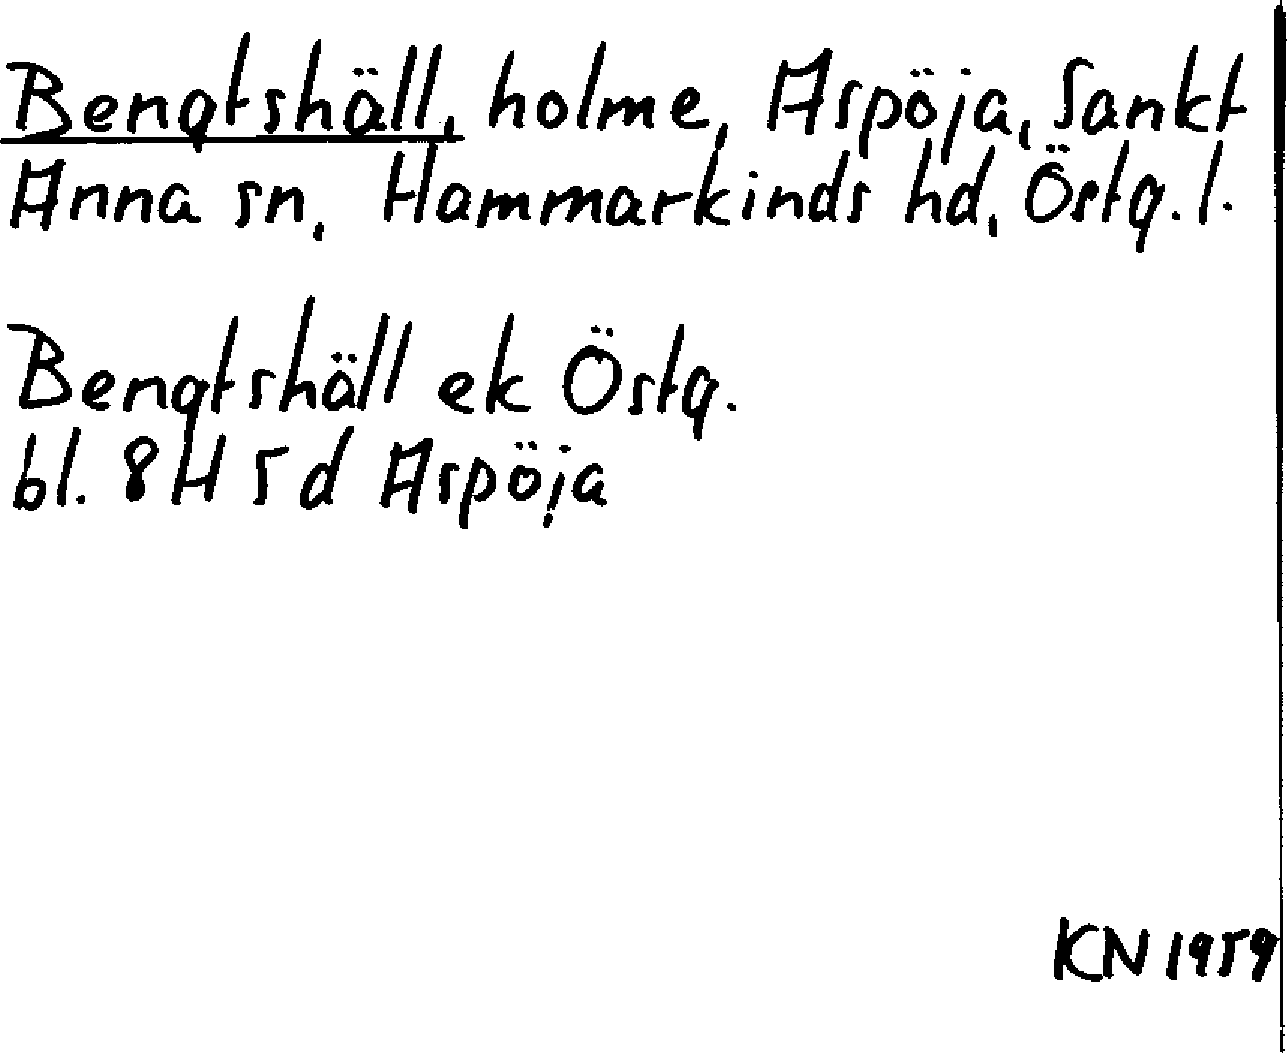 Bengtshäll, holme, Aspöja, Sankt
Anna sn, Hammarkinds hd, Östg. l.
Bengtshäll ek Östg.
bl. 8H 5d Aspöja
KN 1959